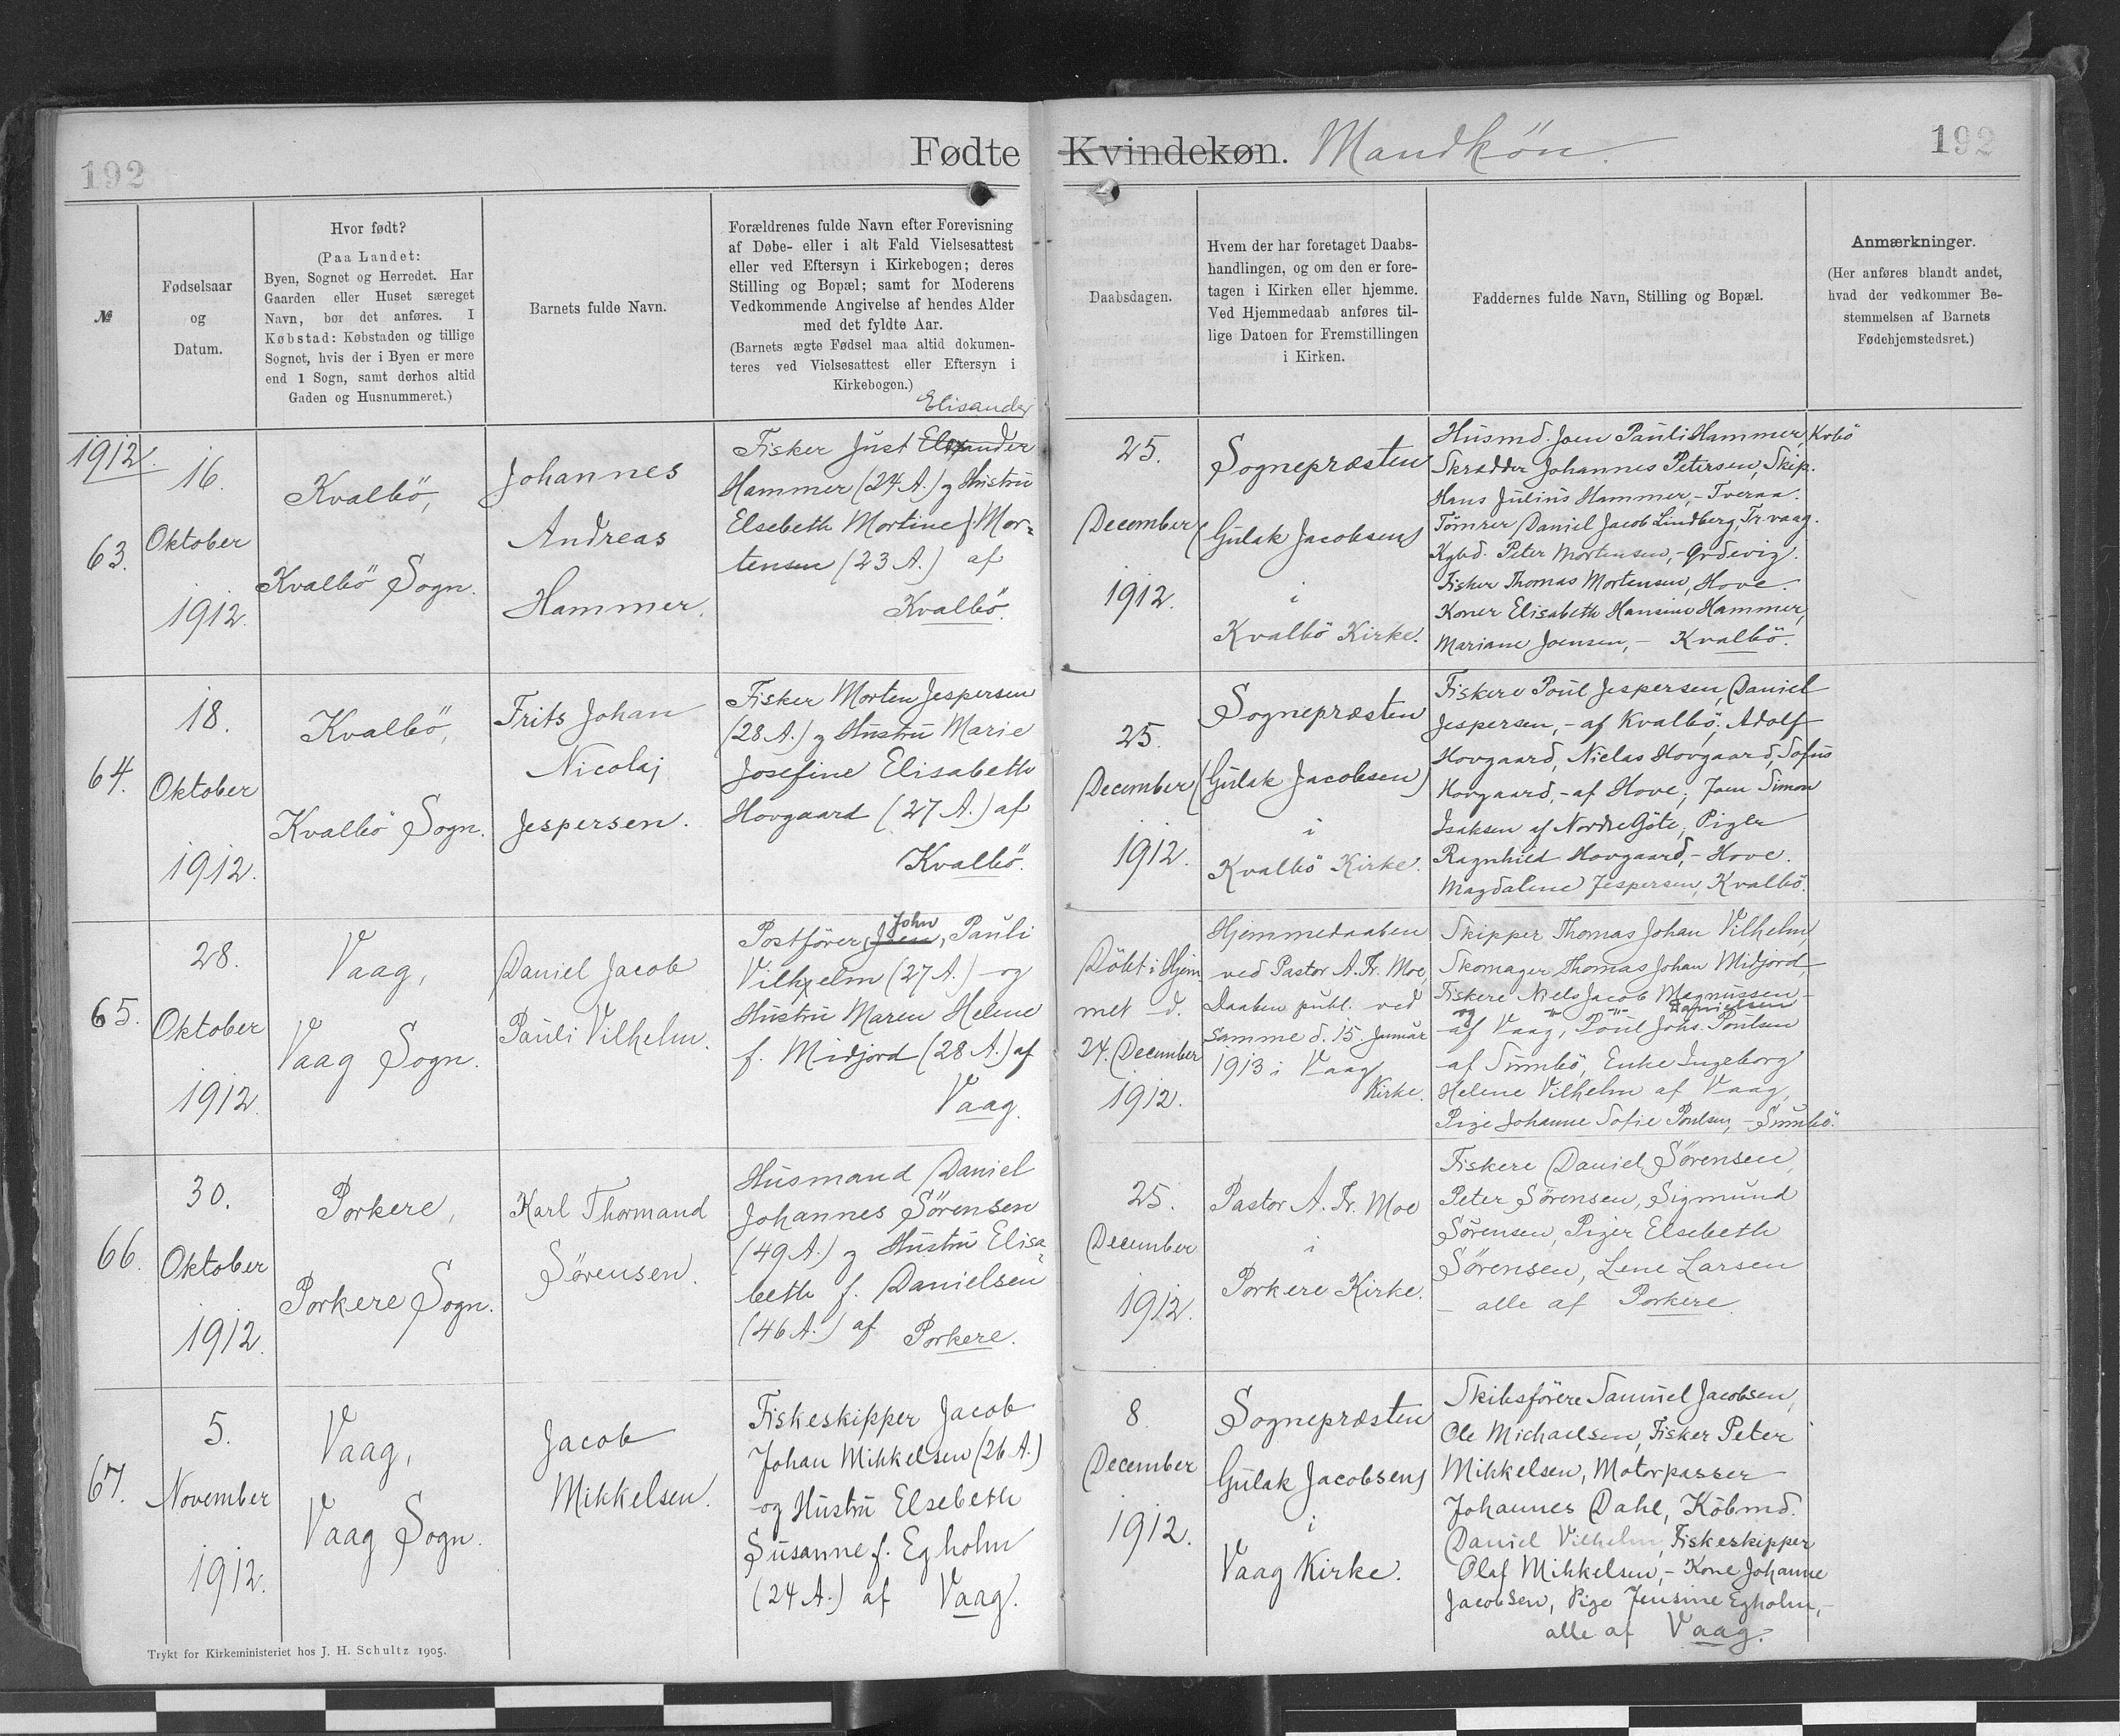 192
Fødte Kvindekøn. Mandkön.
192
№
Fødselsaar
og
Datum.
Hvor født?
(Paa Landet:
Byen, Sognet og Herredet. Har
Gaarden eller Huset særeget
Navn, bør det anføres. I
Købstad: Købstaden og tillige
Sognet, hvis der i Byen er mere
end 1 Sogn, samt derhos altid
Gaden og Husnummeret.)
Barnets fulde Navn.
Forældrenes fulde Navn efter Forevisning
af Døbe- eller i alt Fald Vielsesattest
eller ved Eftersyn i Kirkebogen; deres
Stilling og Bopæl; samt for Moderens
Vedkommende Angivelse af hendes Alder
med det fyldte Aar.
(Barnets ægte Fødsel maa altid dokumen-
teres ved Vielsesattest eller Eftersyn i
Kirkebogen.)
Daabsdagen.
Hvem der har foretaget Daabs-
handlingen, og om den er fore-
tagen i Kirken eller hjemme.
Ved Hjemmedaab anføres til-
lige Datoen for Fremstillingen
i Kirken.
Faddernes fulde Navn, Stilling og Bopæl.
Anmærkninger.
(Her anføres blandt andet,
hvad der vedkommer Be-
stemmelsen af Barnets
Fødehjemstedsret.)
1912.
63.
16.
Oktober
1912.
Kvalbö,
Kvalbö Sogn.
Johannes
Andreas
Hammer.
Elisander
Fisker Just Elexander
Hammer (24 A.) og Hustru
Elsebeth Mortine f. Mor-
tensen (23 A.) af
Kvalbö.
25.
December
1912.
Sognepræsten
(Gulak Jacobsen)
i
Kvalbö Kirke.
Husmd. Joen Pauli Hammer, Kvbö
Skrædder Johannes Petersen, Skip.
Hans Julius Hammer, - Tveraa.
Tömrer Daniel Jacob Lindberg, Tr.vaag.
Kgbd. Peter Mortensen, - Ördevig.
Fisker Thomas Mortensen, Hove.
Koner Elisabeth Hansine Hammer,
Mariane Joensen, - Kvalbö.
64.
18.
Oktober
1912.
Kvalbö,
Kvalbö Sogn.
Frits Johan
Nicolaj
Jespersen.
Fisker Morten Jespersen
(28 A.) og Hustru Marie
Josefine Elisabeth
Hovgaard (27 A.) af
Kvalbö.
25.
December
1912.
Sognepræsten
(Gulak Jacobsen)
i
Kvalbö Kirke.
Fiskere Poul Jespersen, Daniel
Jespersen, - af Kvalbö; Adolf
Hovgaard, Niclas Hovgaard, Sofus
Hovgaard, - af Hove; Joen Simon
Isaksen af Nordre Göte; Piger
Ragnhild Hovgaard, - Hove.
Magdalene Jespersen, Kvalbö.
65.
28.
Oktober
1912.
Vaag,
Vaag Sogn.
Daniel Jacob
Pauli Vilhelm.
John
Postförer Joen, Pauli
Vilhelm (27 A.) - og
Hustru Maren Helene
f. Midjord (28 A.) af
Vaag.
Döbt i Hjem
met d.
24. December
1912.
Hjemmedaaben
ved Pastor A. Fr. Moe,
Daaben publ. ved
samme d. 15. Januar
1913 i Vaag
Kirke.
Skipper Thomas Johan Vilhelm,
Skomager Thomas Johan Midjord,
Fiskere Niels Jacob Magnussen -
og Danielsen
af Vaag, Poul Johs. Poulsen
af Sumbö, Enke Ingeborg
Helene Vilhelm af Vaag,
Pige Johanne Sofie Poulsen, - Sumbö.
66.
30.
Oktober
1912.
Porkere,
Porkere Sogn.
Karl Thormand
Sörensen.
Husmand Daniel
Johannes Sörensen
(49 A.) og Hustru Elisa-
beth f. Danielsen
(46 A.) af Porkere.
25.
December
1912.
Pastor A. Fr. Moe
i
Porkere Kirke.
Fiskere Daniel Sörensen,
Peter Sörensen, Sigmund
Sörensen, Piger Elsebeth
Sörensen, Lene Larsen
- alle af Porkere.
67.
5.
November
1912.
Vaag,
Vaag Sogn.
Jacob
Mikkelsen.
Fiskeskipper Jacob
Johan Mikkelsen (26 A.)
og Hustru Elsebeth
Susanne f. Egholm
(24 A.) af Vaag.
8.
December
1912.
Sognepræsten
Gulak Jacobsen
i
Vaag Kirke.
Skibsförere Samuel Jacobsen,
Ole Michaelsen, Fisker Peter
Mikkelsen, Motorpasser
Johannes Dahl, Köbmd.
Daniel Vilhelm, Fiskeskipper
Olaf Mikkelsen, - Kone Johanne
Jacobsen, Pige Jensine Egholm, -
alle af Vaag.
Trykt for Kirkeministeriet hos J. H. Schultz 1905.